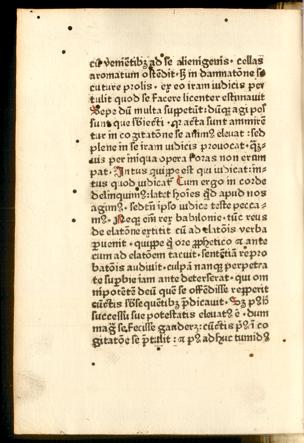 cū veniētibꝫ ad se alienigenis · cellas
aromatum oſtēdit · ꝫ in damnatōne ſe
cuture prolis · ex eo iram iudicis per
tulit quod ſe facere licenter eſtimauit
Sepe dū multa ſuppetūt : dūqꝫ agi poſ
ſunt que ſbiecti · qꝛ acta ſunt ammire
tur in cogitatōne ſe animꝰ eleuat : ſed
plene in ſe iram iudicis prouocat · qꝫ
uis per iniqua opera foras non erum
pat · Intus quippe eſt qui iudicat : in
tus quod iudicat̉ Cum ergo in corde
delinquimꝰ : latet hoīes qd̄ apud nos
agimꝰ · ſed tn̄ ipſo iudice teſte pecca
mꝰ · Neqꝫ em̄ rex babilonie · tūc reus
de elatōne extitit cū ad elatōis verba
ꝑuenit · quippe q̇ ore ꝓphetico ⁊ ante
cum ad elatōem tacuit · ſentētiā repro
batōis audiuit · culpā nanqꝫ perpetra
te ſuꝑbie iam ante deterſerat · qui om
nipotētē deū quē ſe offēdiſſe repperit
cūctis ſbſequētibꝫ p̄dicauit ·
ſucceſſu ſue poteſtatis eleuatꝰ ē · dum
maḡ ſe feciſſe gauderꝫ : cūctis pꝰ ī co
gitatōne ſe p̄tulit : ⁊ pꝰ adhuc tumidꝰ